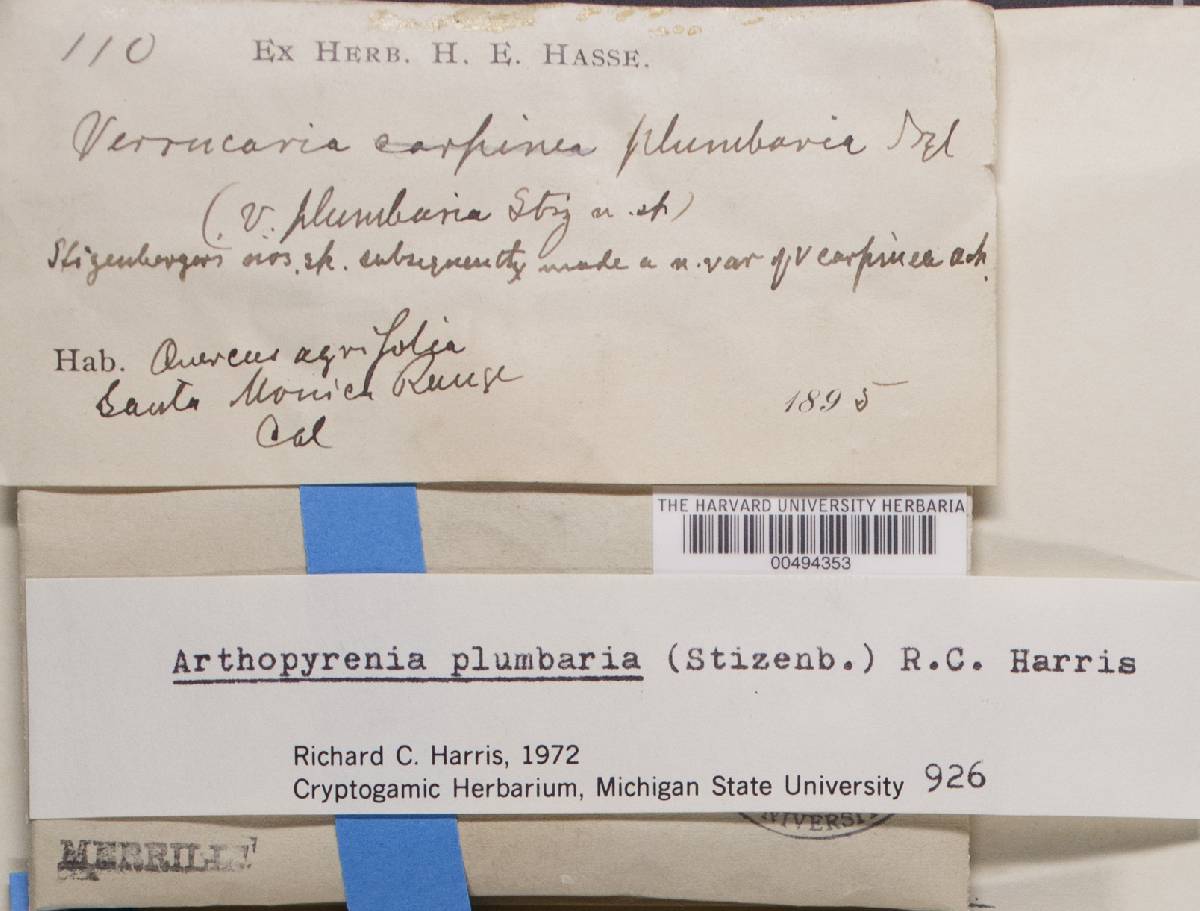 110 EX HERB. H. E. HASSE.
Verrucaria carpinea plumbaria
(V. plumbaria Stiz n. sp)
Stizenbergers nov. sp. subsequently made a n. var of V carpinea ach.
Hab. Quercus agrifolia
Santa Monica Range
Cal
1895
THE HARVARD UNIVERSITY HERBARIA
00494353
Arthopyrenia plumbaria (Stizenb.) R.C. Harris
Richard C. Harris, 1972
Cryptogamic Herbarium, Michigan State University 926
NIVERSI
MERRILL